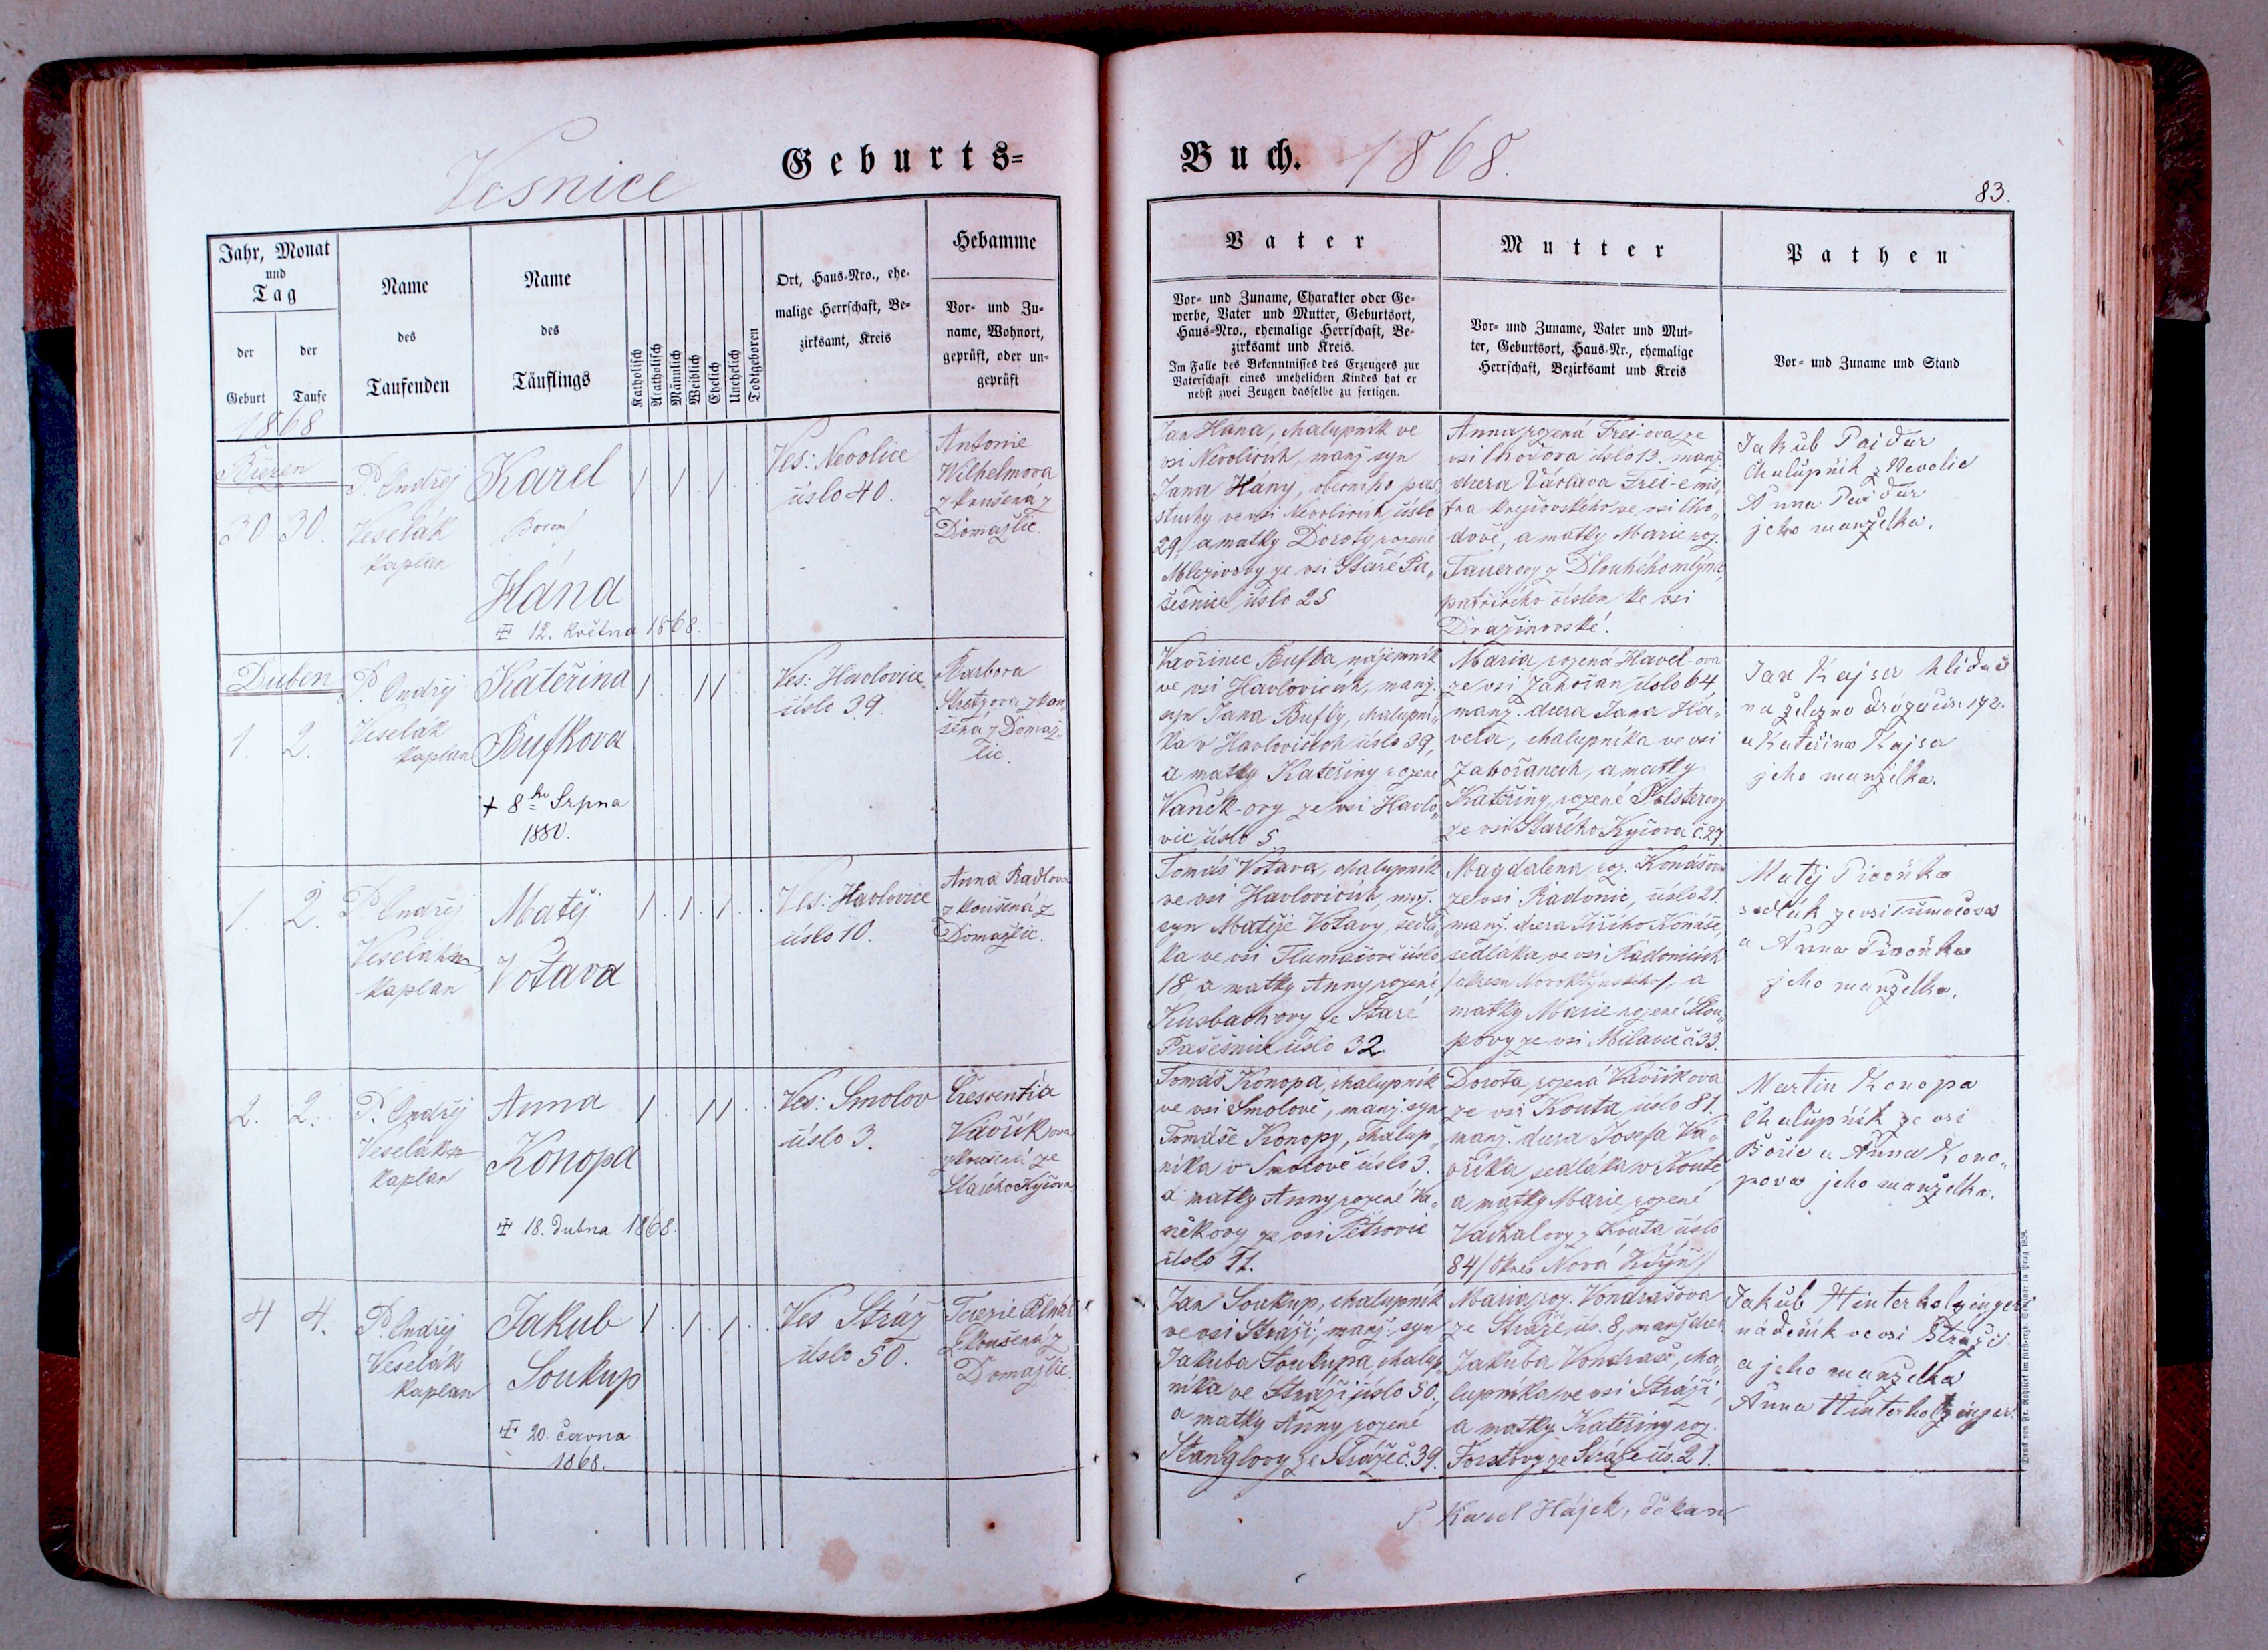 Vesnice
Geburts=
Buch.
1868.
83.
Jahr, Monat
und
Tag
der
Geburt
der
Taufe
Name
des
Taufenden
Name
des
Täuflings
Katholisch
Akatholisch
Männlich
Weiblich
Ehelich
Unehelich
Todtgeboren
Ort, Haus-Nro., ehe-
malige Herrschaft, Be-
zirksamt, Kreis
Hebamme
Vor- und Zu-
name, Wohnort,
geprüft, oder un-
geprüft
Vater
Vor- und Zuname, Charakter oder Ge-
werbe, Vater und Mutter, Geburtsort,
Haus-Nro., ehemalige Herrschaft, Be-
zirksamt und Kreis.
Im Falle des Bekenntnisses des Erzeugers zur
Vaterschaft eines unehelichen Kindes hat er
nebst zwei Zeugen dasselbe zu fertigen.
Mutter
Vor- und Zuname, Vater und Mut-
ter, Geburtsort, Haus-Nr., ehemalige
Herrschaft, Bezirksamt und Kreis
Pathen
Vor- und Zuname und Stand
1868
Březen
30 30.
P. Ondřej
Veselák
kaplan
Karel
Hána
12. května 1868.
Ves: Nevolice
číslo 40.
Antonie
Wilhelmova
zkoušená z
Domažlic.
Jan Hána, chalupník ve
vsi Nevolicích, manž. syn
Jana Hány, obecního pas
tuchy ve vsi Nevolicích číslo
29, a matky Doroty rozené
Mlezivovy ze vsi Staré Pa„
sečnice číslo 25
Anna rozená Frei-ova ze
vsi Chodova číslo 13. manž.
dcera Václava Frei-e mis„
tra krejčovského ve vsi Cho„
dově, a matky Marie roz.
Tauerovy z Dlouhého mlýna,
patřícího číslem ke vsi
Dražinovské.
Jakub Pajdar
Chalupník z Nevolic
Anna Pajdar
jeho manželka.
Duben
1. 2.
P. Ondřej
Veselák
kaplan
Kateřina
Bufkova
+ 8ho Srpna
1880.
Ves: Havlovice
číslo 39.
Barbora
zkou„
šená z Domaž„
lic.
Vavřinec Bufka, nájemník
ve vsi Havlovicích, manž.
syn Jana Bufky, chalupní„
ka v Havlovicích číslo 39,
a matky Kateřiny rozené
Vaněk-ovy ze vsi Havlo„
vic číslo 5.
Maria rozená Havel-ova
ze vsi Zahořan číslo 64
manž. dcera Jana Ha„
vela, chalupníka ve vsi
Zahořanech, a matky
Kateřiny, rozené Polsterovy
ze vsi Starého Kyčova č. 27.
Jan Kajser hlídač
na železno dráze čís. 172.
a Kateřina Kajser
jeho manželka.
1. 2.
P. Ondřej
Veselák
kaplan
Matěj
Votava
Ves: Havlovice
číslo 10.
Anna Radlova
zkoušená z
Domažlic.
Tomáš Votava, chalupník
ve vsi Havlovicích, manž.
syn Matěje Votavy, sedlá„
ka ve vsi Tlumačově číslo
18 a matky Anny rozené
Kusbachovy ze Staré
Pasečnice číslo 32
Magdalena roz. Konášova
ze vsi Radonic, číslo 21.
manž. dcera Jiřího Konáše,
sedláka ve vsi Radonicích
/okresu Novokdýnského/, a
matky Marie rozené Slou„
povy ze vsi Milaveč č. 33.
Matěj Pivoňka
sedlák ze vsi Tlumačova
a Anna Pivoňka
jeho manželka.
2. 2.
P. Ondřej
Veselák
kaplan
Anna
Konopa
18. dubna 1868.
Ves: Smolov
číslo 3.
Crescentia
Vavřík ova
zkoušená ze
Starého Kyčova
Tomáš Konopa, chalupník
ve vsi Smolově, manž. syn
Tomáše Konopy, chalup„
níka v Smolově číslo 3.
a matky Anny rozené Va„
někovy ze vsi Petrovic
číslo 11.
Dorota, rozená Vavříkova
ze vsi Kouta číslo 81.
manž. dcera Josefa Va„
vříka, sedláka v Koutě
a matky Marie, rozené
Váchalovy z Kouta číslo
84 /okres Nová Kdýň/
Martin Konopa
Chalupník ze vsi
Bořic a Anna Kono„
pova jeho manželka.
4 4.
P. Ondřej
Veselák
kaplan
Jakub
Soukup
20. června
1868.
Ves Stráž
číslo 50.
Terezie
zkoušená z
Domažlic.
Jan Soukup, chalupník
ve vsi Stráži, manž. syn
Jakuba Soukupa, chalup„
níka ve Stráži číslo 50.
a matky Anny rozené
Stanglovy ze Stráže č. 39.
Maria roz. Vondrašova
ze Stráže čís. 8, manž. dcera
Jakuba Vondraše, cha„
lupníka ve vsi Stráži,
a matky Kateřiny roz.
Forstovy ze Stráže čís. 21.
Jakub Hinterholzinger
nádeník ve vsi Stráži
a jeho manželka
Anna Hinterholzinger.
P. Karel Hájek, děkan